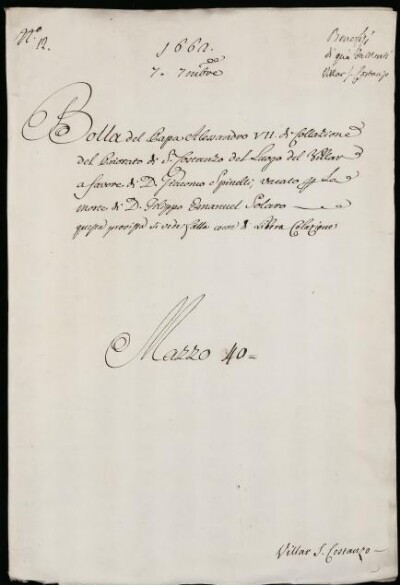 N.º 12.
Benefizj
di quà da Monti
Villar S. Costanzo
1662.
7. 7mbre
Bolla del Papa Alessandro VII. di Collazione
del Priorato di S. Costanzo del Luogo del Villar
a favore di D. Giacomo Spinelli, vacato per la
morte di D. Filippo Emanuel Solaro
questa provista si vede fatta come di Libera Colazione
Mazzo 40=
Villar S. Costanzo